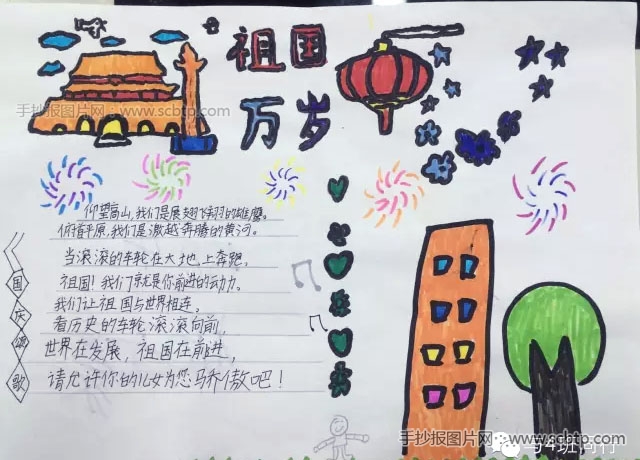 祖国
万岁
手抄报图片网:www.scbtp.com
仰望高山,我们是展翅飞翔的雄鹰。
俯看平原,我们是激越奔腾的黄河。
当滚滚的车轮在大地上奔跑,
祖国!我们就是你前进的动力。
我们让祖国与世界相连,
看历史的车轮滚滚向前,
世界在发展,祖国在前进,
请允许你的儿女为您骄傲吧!
国庆颂歌
手抄报图片网:www.scbtp.com